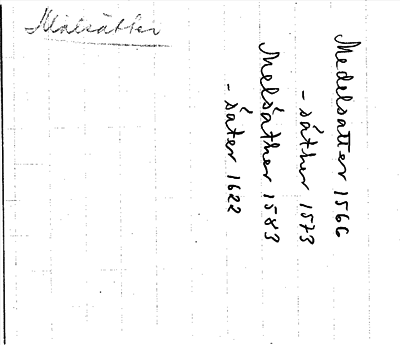 Målsätter
Medelsatter 1566
- såther 1573
Melsåther 1583
- såter 1622